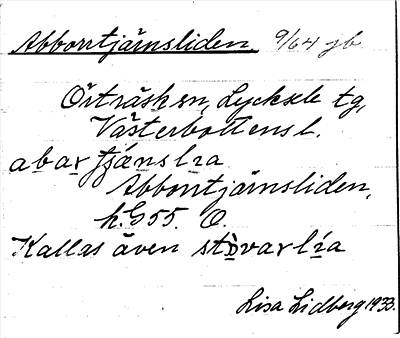 Abborrtjärnsliden 9/64 jb
Örträsk sn, Lycksele tg,
Västerbottens l.
abar tjänslia
Abborrtjärnsliden,
k. G 55. O.
Kallas även stòvarlia
Lisa Lidberg 1933.